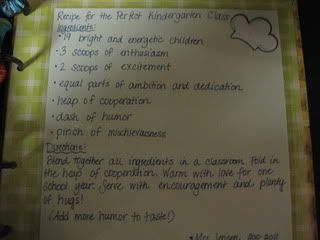 Recipe for the Perfect Kindergarten Class
Ingredients:
• 19 bright and energetic children
• 3 scoops of enthusiasm
• 2 scoops of excitement
• equal parts of ambition and dedication
• heap of cooperation
• dash of humor
• pinch of mischievousness
Directions:
Blend together all ingredients in a classroom. Fold in
the heap of cooperation. Warm with love for one
school year. Serve with encouragement and plenty
of hugs!
(Add more humor to taste!)
Mrs.